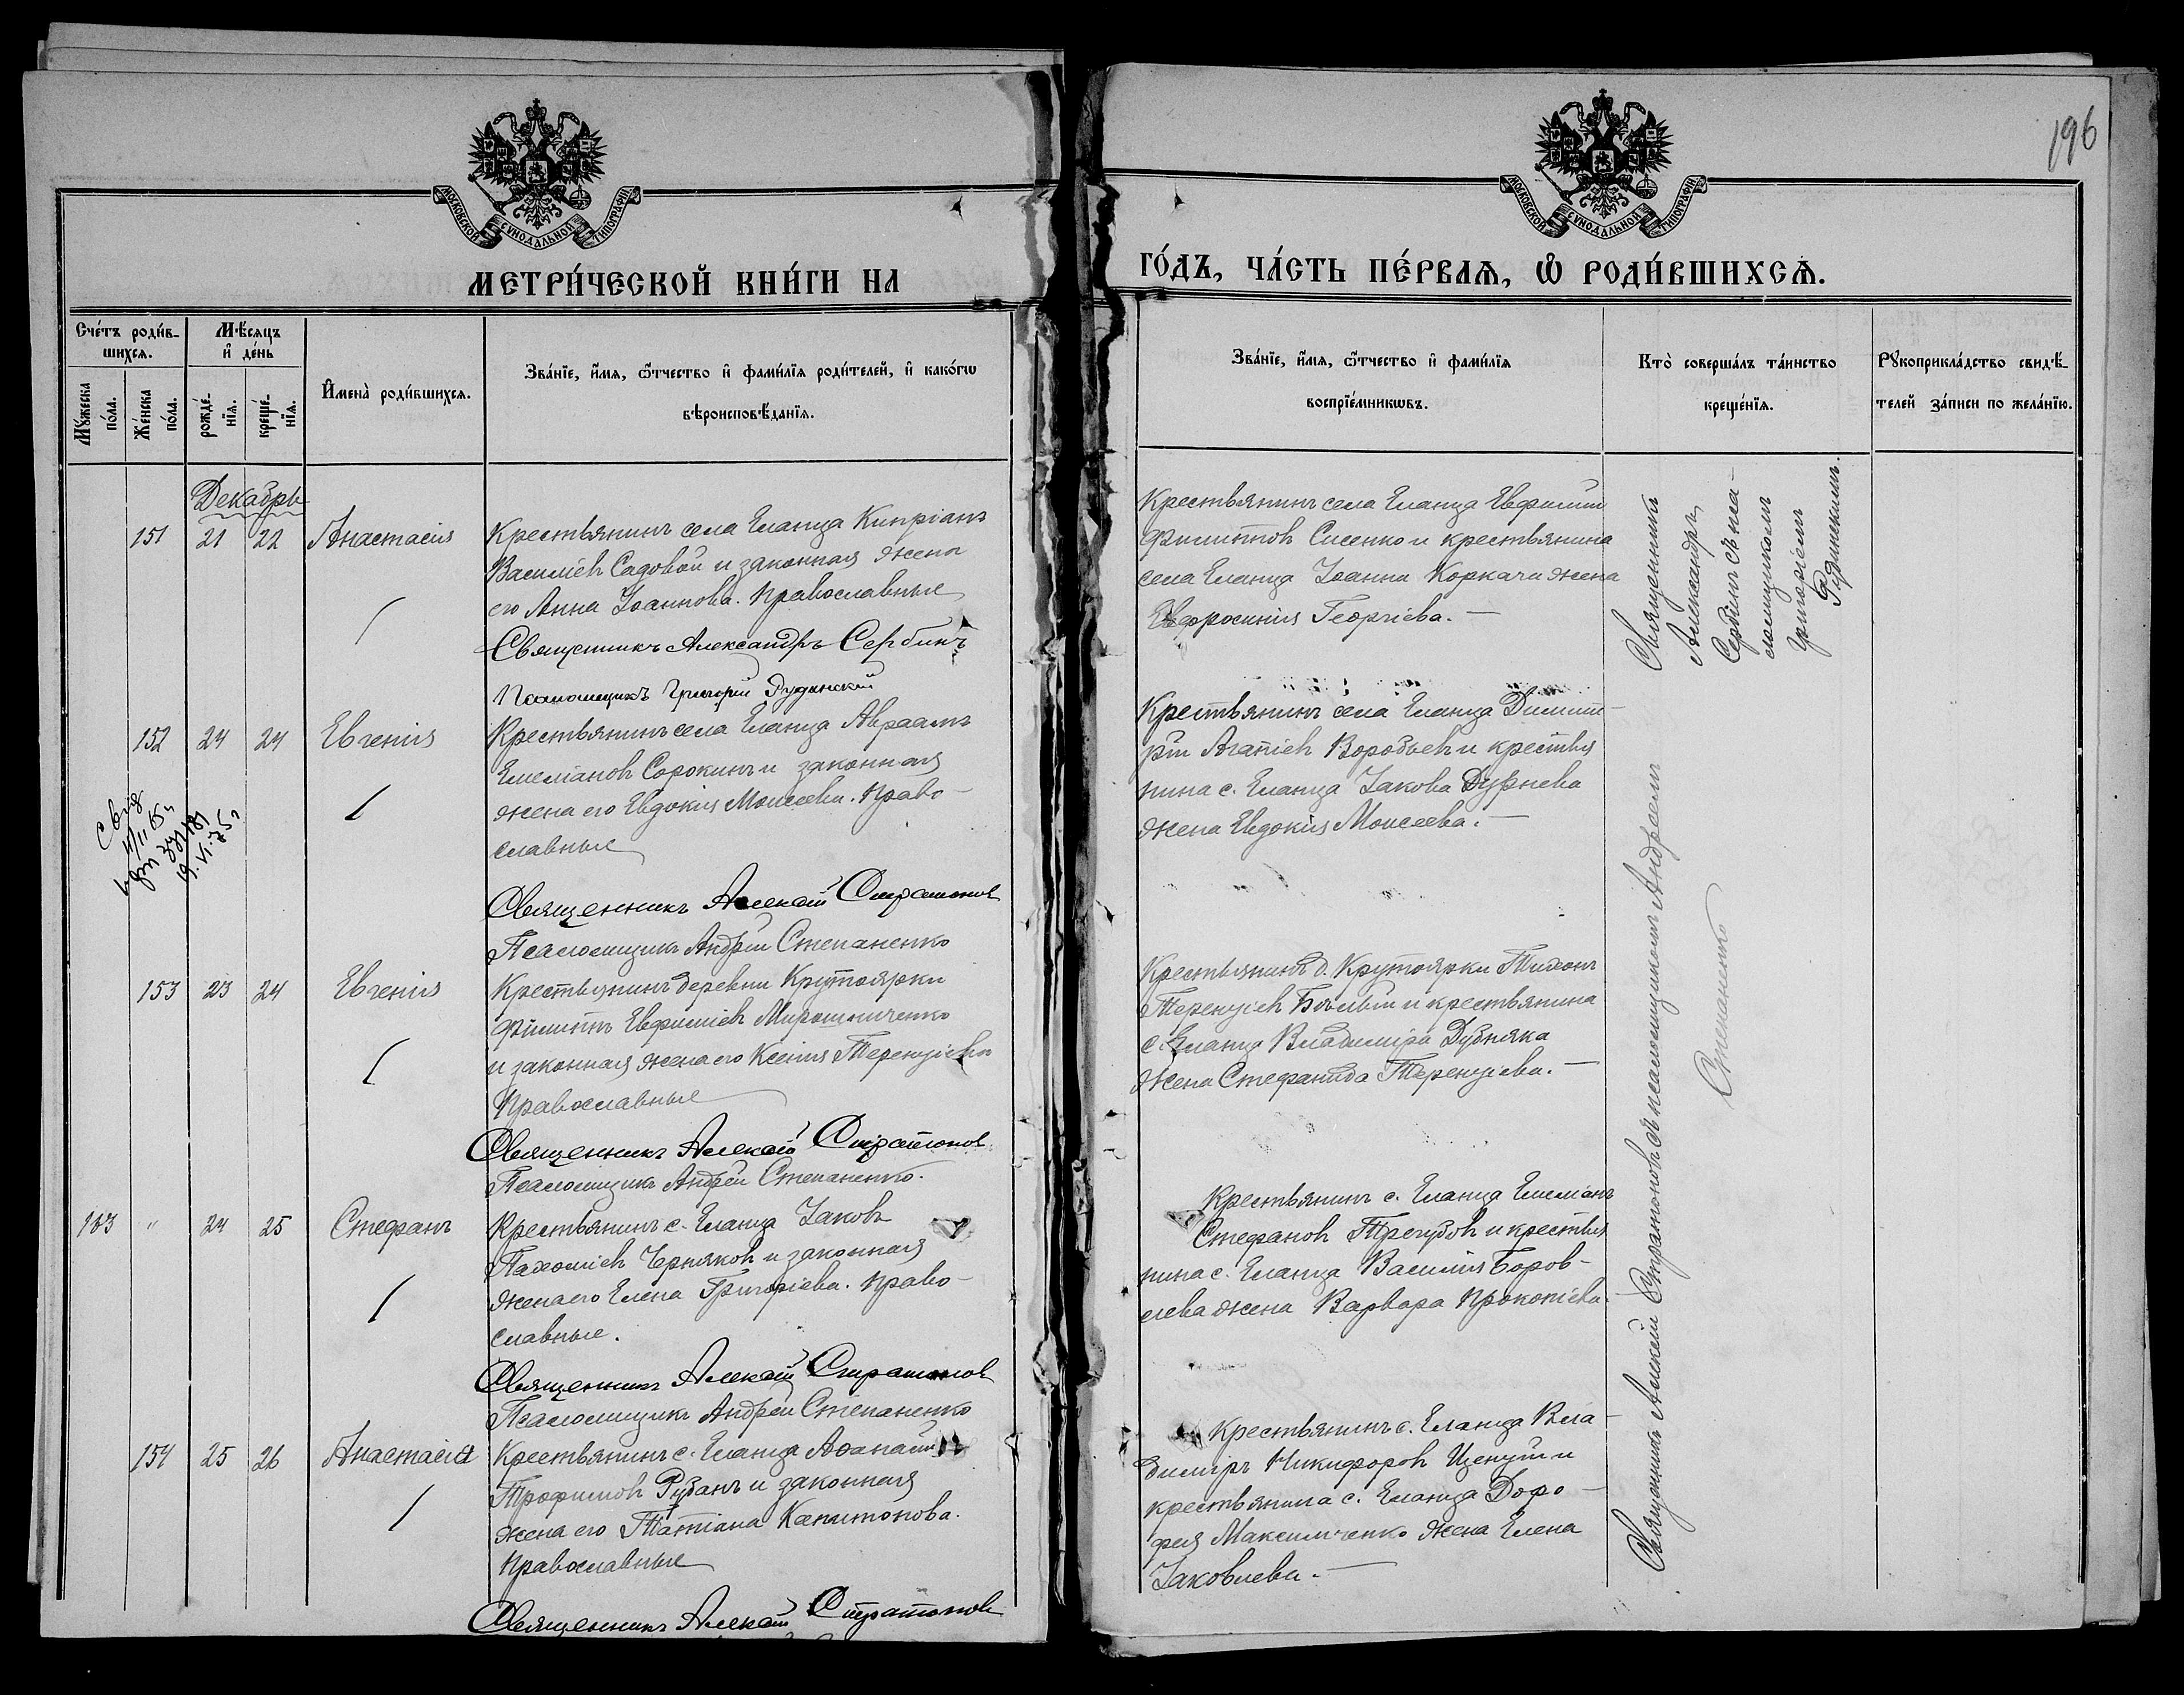 МОСКОВСКОЙ СѴНОДАЛЬНОЙ ТИПОГРАФІИ
МОСКОВСКОЙ СѴНОДАЛЬНОЙ ТИПОГРАФІИ
196
МЕТРИ́ЧЕСКОЙ КНИ́ГИ НА
ГО́ДЪ, ЧА́СТЬ ПЕ́РВАЯ, Ѡ РОДИ́ВШИХСЯ.
Сче́тъ роди́в-
шихся.
Мꙋжеска по́ла.
Же́нска по́ла.
Мѣ́сяцъ
и де́нь
рожде́-
нїя.
креще́-
нїя.
Имена̀ роди́вшихся.
Зва́нїе, и́мя, ѻ́тчество и фами́лїя роди́телей, и како́гѡ
вѣроисповѣ́данїя.
Зва́нїе, и́мя, ѻ́тчество и фами́лїя
воспрїе́мникѡвъ.
Кто̀ соверша́лъ та́инство
креще́нїя.
Рꙋкоприкла́дство свидѣ́-
телей за́писи по жела́нїю.
Декабрь
151 21 22 Анастасія
Крестьянинъ села Еланца Кипріанъ
Василіевъ Садовой и законная жена
его Анна Іоаннова. Православные
Священникъ Александръ Сербинъ
Псаломщикъ Григорій Рудинскій
Крестьянинъ села Еланца Евфимій
Филипповъ Сисенко и крестьянина
села Еланца Іоанна Коркачи жена
Евфросинія Георгіева. —
Священникъ
Александръ
Сербинъ съ пса-
ломщикомъ
Григоріемъ
Рудинскимъ.
152 24 24 Евгенія
Крестьянинъ села Еланца Авраамъ
Емеліановъ Сорокинъ и законная
жена его Евдокія Моисеева. Право-
славные
Священникъ Алексѣй Стратоновъ
Псаломщикъ Андрей Степаненко
Крестьянинъ села Еланца Димит-
рій Агапіевъ Воробьевъ и крестья
нина с. Еланца Іакова Дурнева
жена Евдокія Моисеева. —
153 23 24 Евгенія
Крестьянинъ деревни Крутоярки
Филиппъ Евфиміевъ Мирошниченко
и законная жена его Ксенія Терентіева
Православные
Священникъ Алексѣй Стратоновъ
Псаломщикъ Андрей Степаненко.
Крестьянинъ д. Крутоярки Тихонъ
Терентіевъ Бѣлый и крестьянина
с. Еланца Владиміра Дубняка
жена Стефанида Терентіева. —
163 " 24 25 Стефанъ
Крестьянинъ с. Еланца Іаковъ
Пахоміевъ Черняковъ и законная
жена его Елена Григоріева. Право-
славные.
Священникъ Алексѣй Стратоновъ
Псаломщикъ Андрей Степаненко
Крестьянинъ с. Еланца Емеліанъ
Стефановъ Трегубовъ и крестья
нина с. Еланца Василія Боров-
лева жена Варвара Прокопіева.
154 25 26 Анастасія
Крестьянинъ с. Еланца Аѳанасій
Трофимовъ Рубанъ и законная
жена его Татіана Капитонова.
Православные
Священникъ Алексѣй Стратоновъ
Крестьянинъ с. Еланца Вла-
диміръ Никифоровъ и
крестьянина с. Еланца Доро-
фея Максимченко жена Елена
Іаковлева. —
Священникъ Алексѣй Стратоновъ съ псаломщикомъ Андреемъ
Степаненко